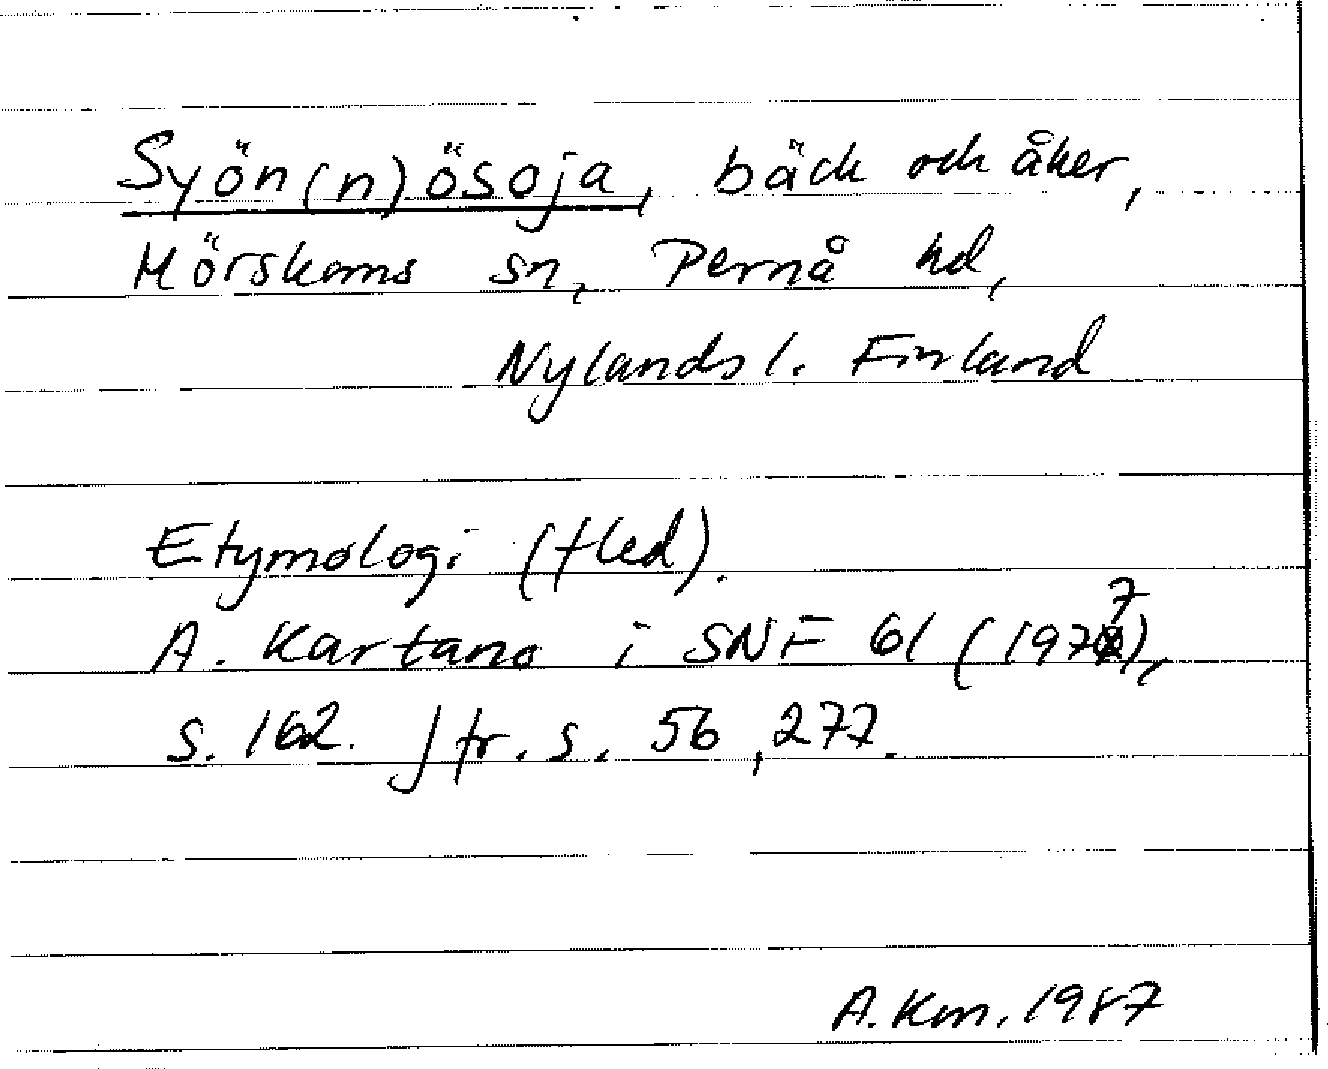 Syön(n)ösoja, bäck och åker,
Mörskoms sn, Pernå hd,
Nylands l. Finland
Etymologi (fled).
A. Kartano i SNF 61 (1977),
s. 162. Jfr. s. 56, 277.
A. Km. 1987